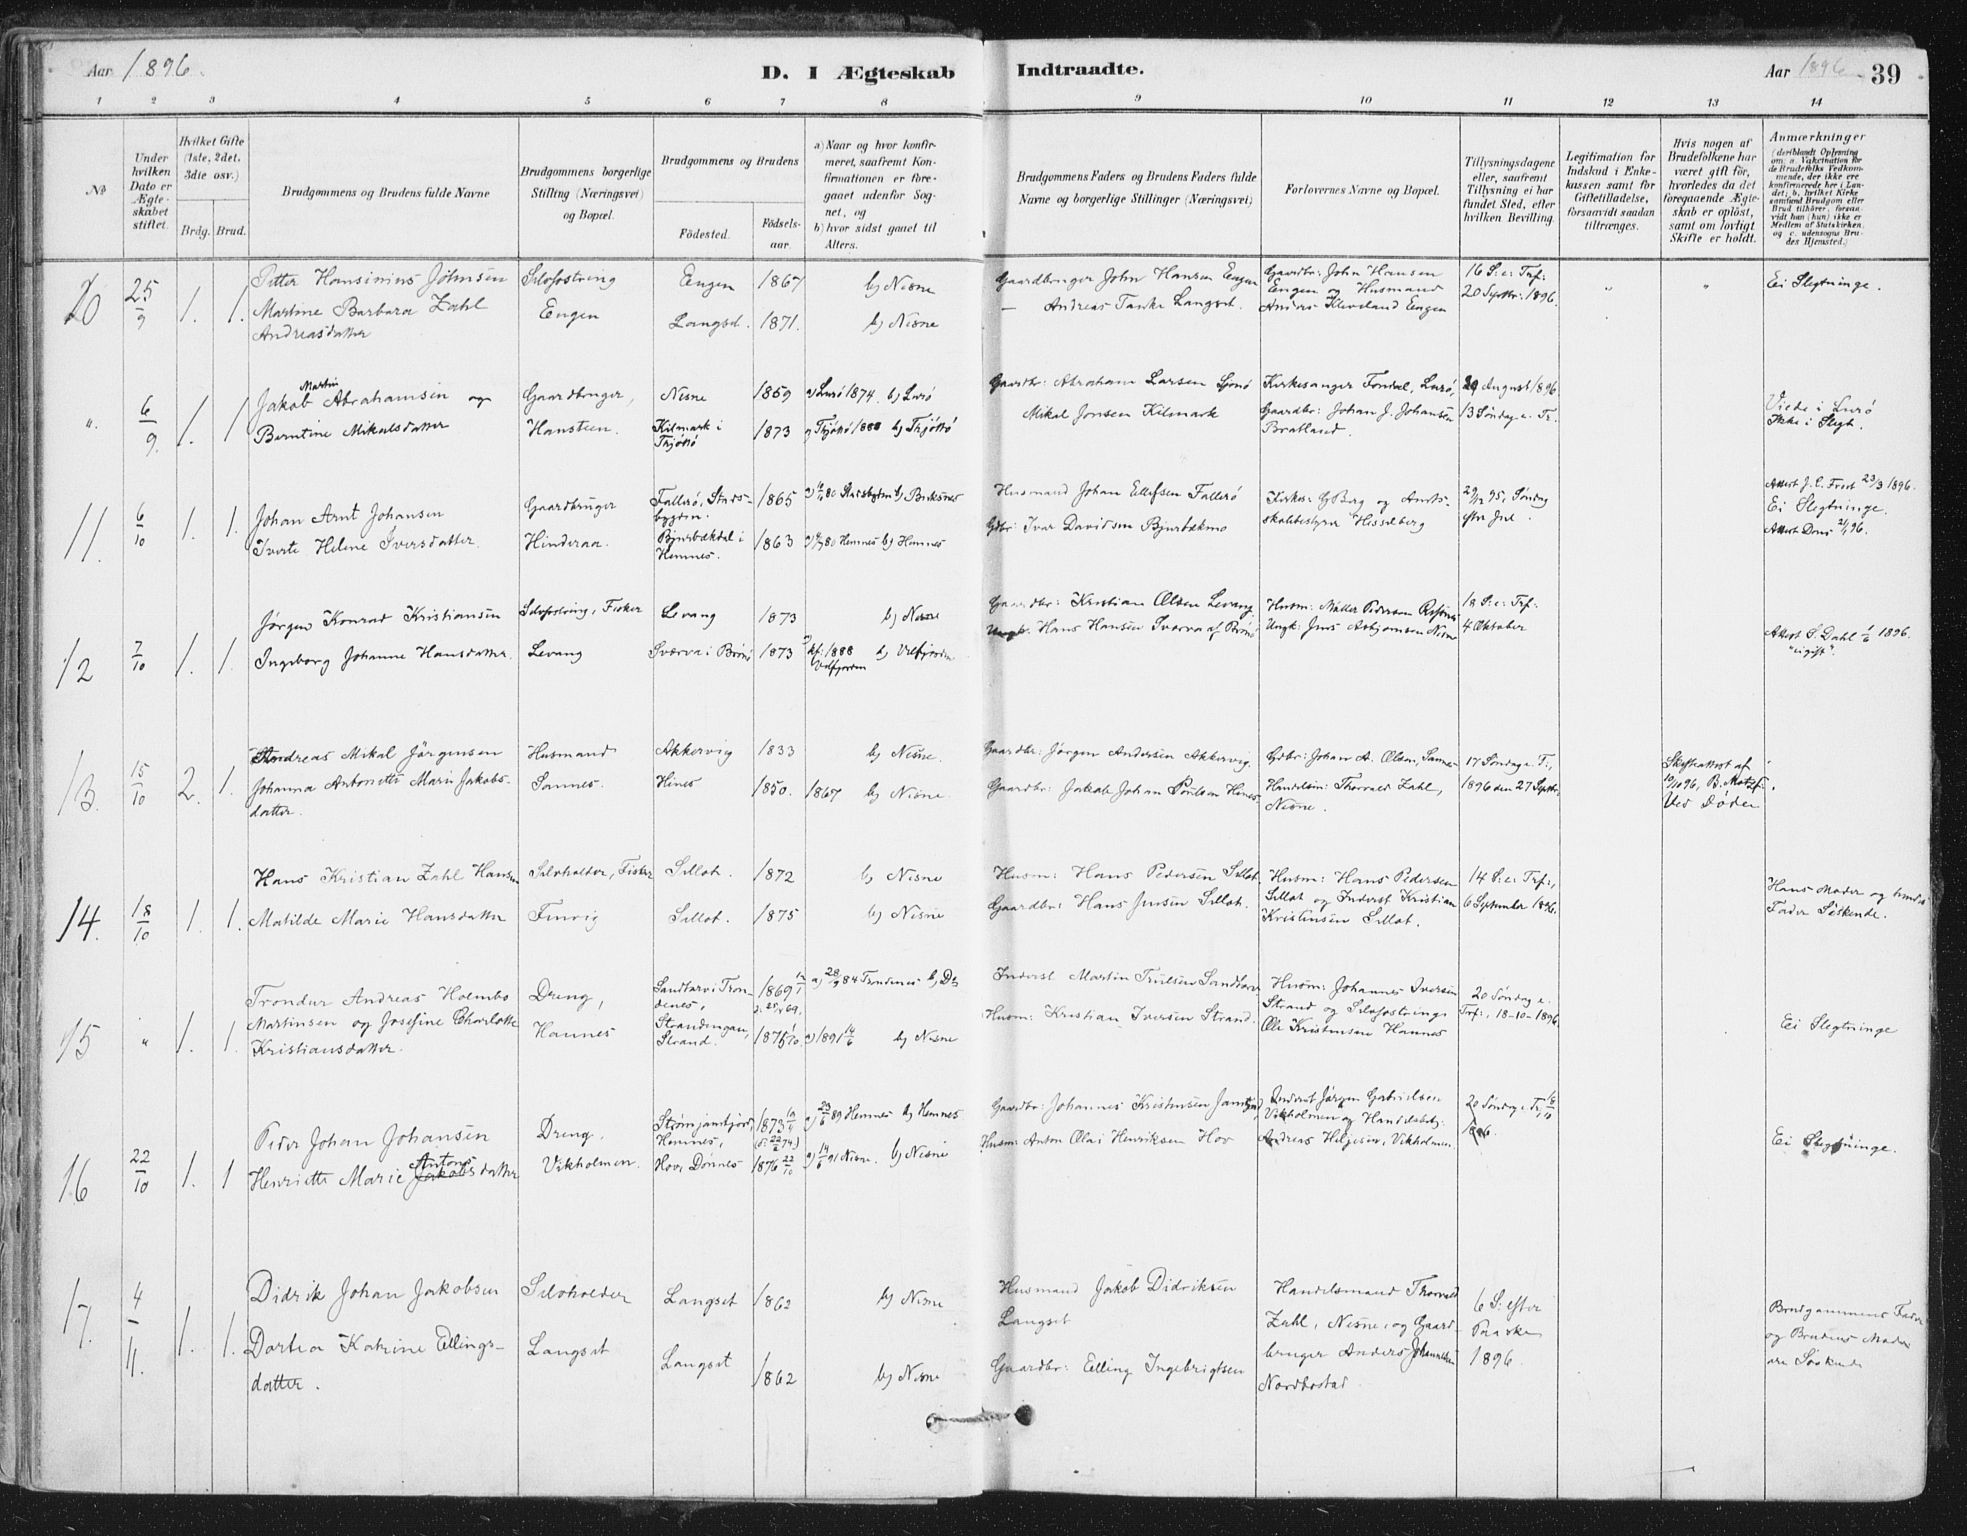 Aar 1896.
D. I Ægteskab Indtraadte.
Aar 1896. 39
1 2 3 4 5 6 7 8 9 10 11 12 13 14
No
Under hvilken Dato er Ægteskabet stiftet.
Hvilket Gifte (1ste, 2det, 3die osv.)
Brdg. Brud.
Brudgommens og Brudens fulde Navne
Brudgommens borgerlige Stilling (Næringsvei) og Bopæl.
Brudgommens og Brudens
Födested. Födsels-aar.
a) Naar og hvor konfirmeret, saafremt Konfirmationen er foregaaet udenfor Sognet, og
b) hvor sidst gaaet til Alters.
Brudgommens Faders og Brudens Faders fulde Navne og borgerlige Stillinger (Næringsvei)
Forlovernes Navne og Bopæl.
Tillysningsdagene eller, saafremt Tillysning ei har fundet Sted, efter hvilken Bevilling.
Legitimation for Indskud i Enkekassen samt for Giftetilladelse, forsaavidt saadan tiltrænges.
Hvis nogen af Brudefolkene har været gift för, hvorledes da det foregaaende Ægteskab er oplöst, samt om lovligt Skifte er holdt.
Anmærkninger
(deriblandt Oplysning om: a. Vakcination for de Brudefolks Vedkommende, der ikke ere konfirmerede her i Landet; b. hvilket Kirkesamfund Brudgom eller Brud tilhörer, forsaavidt han (hun) ikke er Medlem af Statskirken, og c. udensogns Brudes Hjemsted.)
10 25/9 1. 1. Petter Hansinius Johnsen Selvfostring Engen 1867 b) Nesne Gaardbruger John Hansen Engen Gaardbr: John Hansen 16 S: e: Tref: " " Ei Slegtninge.
Martine Barbara Zahl Engen Langset. 1871. b) Nesne — Andreas Tanke Langset. Engen og Husmand 20 Septbr: 1896.
Andreasdatter Anders Kleveland Engen
" 6/9 1. 1 Jakob Martin Abrahamsen og Gaardbruger, Nesne 1859 a) Lurö 1874. b) Lurö Gaardbr: Abraham Larsen Kirkesanger Lurö, August 1896 Viede i Lurö
Berntine Mikalsdatter Hansteen. Kilmark i Thjöttö 1873 a) Thjöttö 1888 b) Thjöttö Mikal Jonsen Kilmark Gaardbr: Johan J. Johansen Bratland. 13 Söndag e. Tr. Ikke i Slegt.
11. 6/10 1. 1. Johan Arnt Johansen Gaardbruger Fallerö, Stadsbygden. 1865 80 Stadsbygden b) Husmand Johan Ellefsen Fallerö Kirkes: Berg og Amts- 29/12 95, Söndag Attest 23/3 1896.
Iverte Helene Iversdatter. Hinderaa. Bjurbækdal i Hemnes. 1863 80 Hemnes b) Hemnes Gdbr: Ivar Davidsen Bjurbækmo skolebestyrer Hesselberg efter Jul. Ei Slegtninge.
12 7/10 1. 1. Jörgen Konrad Kristiansen Selvfostring, Fisker Levang 1873 b) Nesne Gaardbr: Kristian Olsen Levang Husm: Möller Pedersen 18 S: e: Tref:
Ingeborg Johanne Hansdatter. Levang 1873 kf: 1888 Velfjorden b) Velfjorden Hans Hansen Ungk: Jens Asbjörnsen Nesne 4 Oktober Attest S. Dahl 1896. "eigift".
13. 15/10 2. 1. Andreas Mikal Jörgensen Husmand Akkervig 1833 b) Nesne. Gaardbr: Jörgen Andersen Akkervig. Gdbr: Johan A. Olsen, Sannes 17 Söndag e. T., Skifteattest af
Johanna Antonette Marie Jakobsdatter. Sannes. Hines 1850. 1867 b) Nesne. Gaardbr: Jakob Johan Poulsen Hines Handelsm: Thorvald Zahl, Nesne. 1896 den 27 Septbr. Ved Döden
14. 18/10 1. 1. Hans Kristian Zahl Hansen Selvholder, Fisker Sellot. 1872 b) Nesne Husm: Hans Pedersen Sellot Husm: Hans Pedersen 14 S: e: Tref:, Hans Moder og hendes
Matilde Marie Hansdatter Finvig Sellot. 1875 b) Nesne Gaardbr: Hans Jensen Sellot. Sellot og Inderst Kristian Kristensen Sellot. 6 September 1896. Fader Söskende.
15 " 1. 1. Trondur Andreas Holmbo Dreng, Sandtorv i Trondenes, 1869 a) 28/9 84 Trondenes Inderst Martin Truelsen Sandtorv Husm: Johannes Iversen 20 Söndag e.
Martinsen og Josefine Charlotte Hannes Strandengan, Strand. 1875 a) 1891 14/6 b) Nesne Husm: Kristian Iversen Strand. Strand og Selvfostring Tref:, 18-10-1896. Ei Slegtninge
Kristiansdatter. Ole Kristensen Hannes
16 22/10 1. 1 Peder Johan Johansen Dreng, Hemnes, 1873 a) 23/6 89 Hemnes b) Hemnes Gaardbr: Johannes Kristensen Inderst Jörgen Gabrielsen 20 Söndag e. Tr, 18/10
Henriette Marie Jakobsdatter Antons Vikholmen. Hov, Dönnes 1876 22/10 a) 14/6 91 Nesne. b) Nesne Husm: Anton Olai Henriksen Hov Vikholmen og Handelsbetj: 1896. Ei Slegtninge.
Andreas Helgesen, Vikholmen.
17. 4/11. 1. 1. Didrik Johan Jakobsen Selvholder Langset 1862 b) Nesne Husmand Jakob Didriksen Handelsmand Thorvald 6 S: efter Brudgommens Fader
Langset Zahl, Nesne, og Gaard- Paaske og Brudens Moder
Dortea Katrine Ellings- Langset Langset 1862 b) Nesne Gaardbr: Elling Ingebrigtsen bruger Anders Johannesen 1896. ere Söskende
datter. Nordbostad